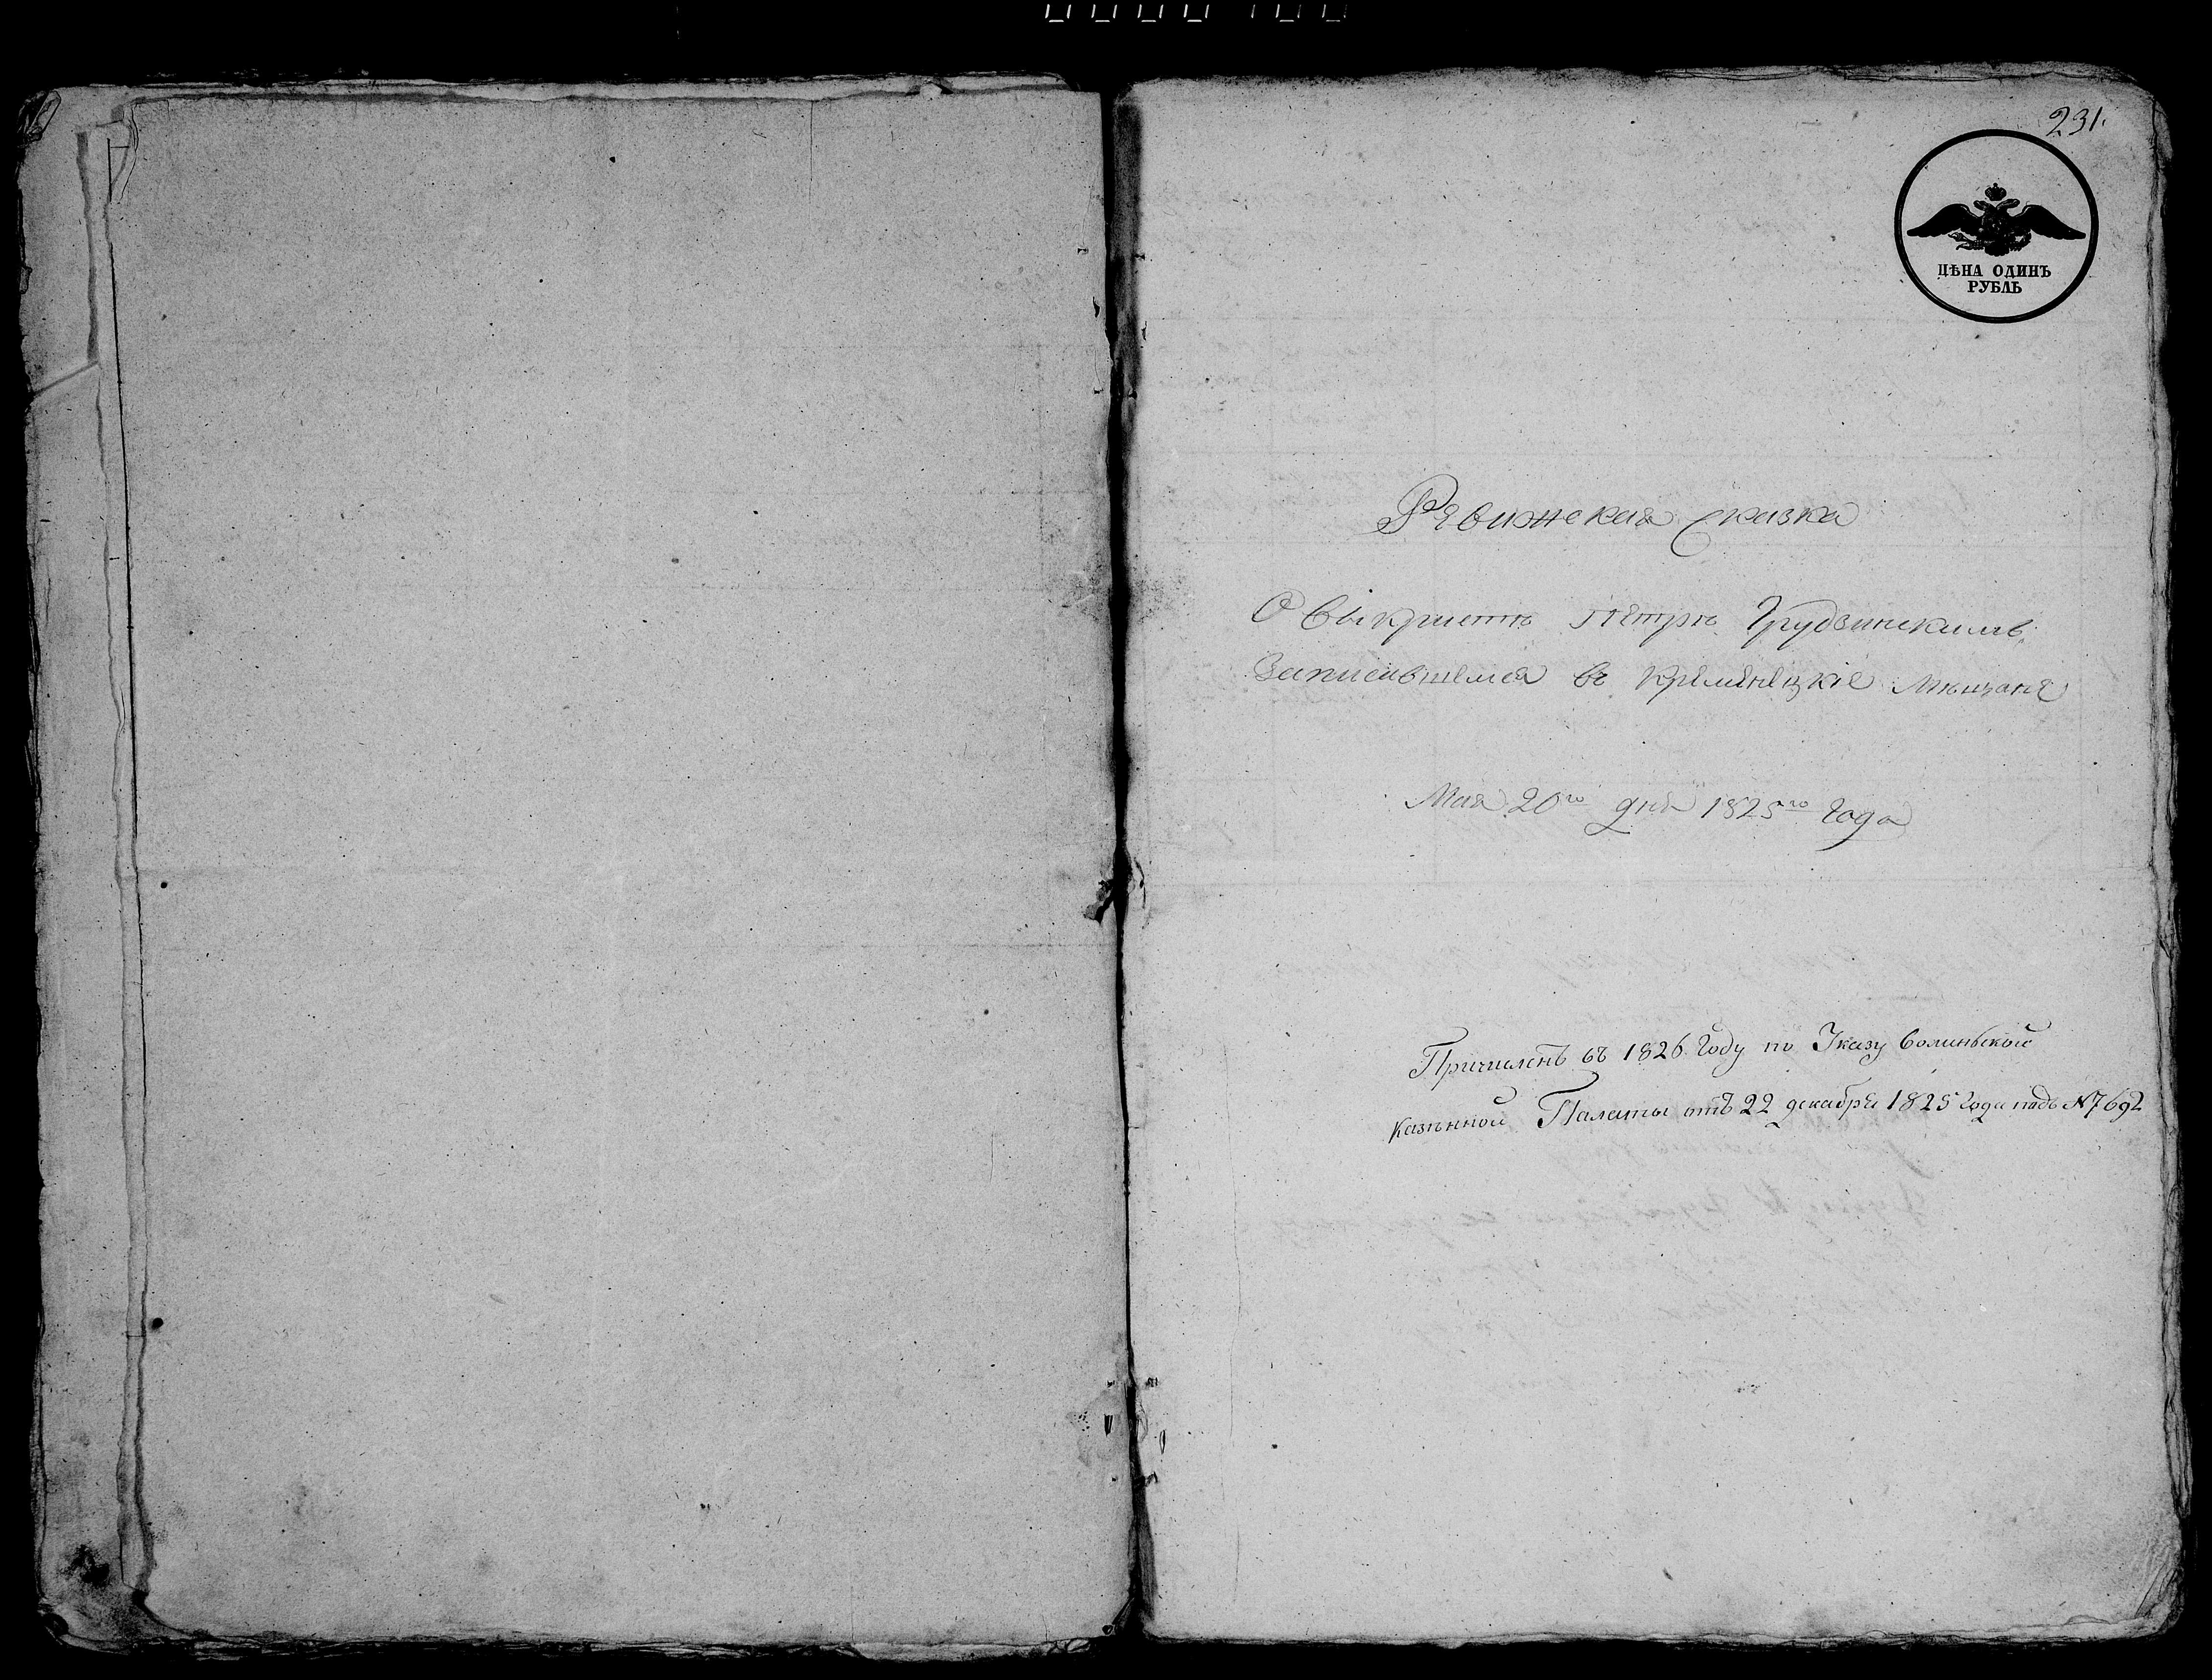 231.
ЦѢНА ОДИНЪ
РУБЛЬ
Ревижская Сказка
О выкристѣ Петрѣ Грудзинскимъ
Записавшемся въ Кременецкіе Мѣщане
Мая 20го дня 1825го года
Причисленъ въ 1826 году по Указу Волынской
Казенной Палаты отъ 22 декабря 1825 года подъ N7692